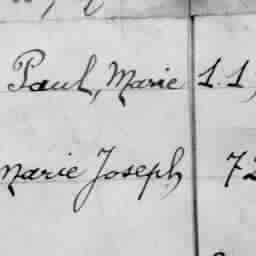 Paul, Marie 1.1
Marie Joseph 72